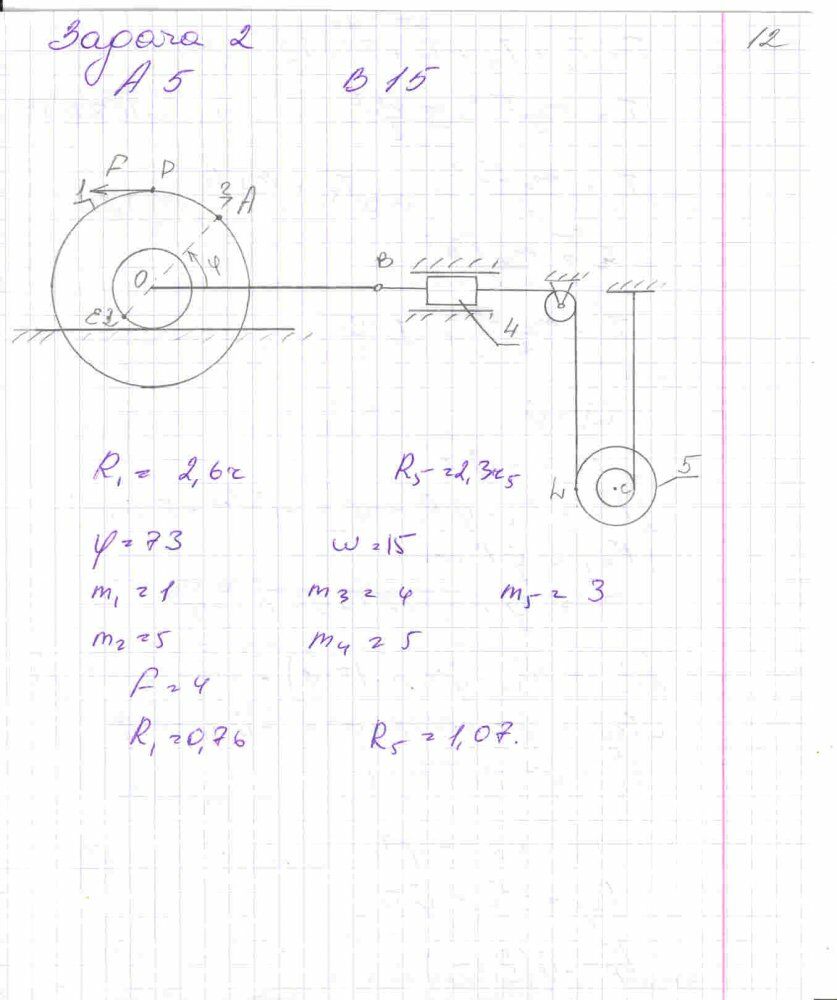 Задача 2
12
А 5 В 15
F P
1 3 A
O φ B
E 2
4
L C 5
R₁ = 2,6r R₅ = 2,3r₅
φ = 73 ω = 15
m₁ = 1 m₃ = 4 m₅ = 3
m₂ = 5 m₄ = 5
F = 4
R₁ = 0,76 R₅ = 1,07.